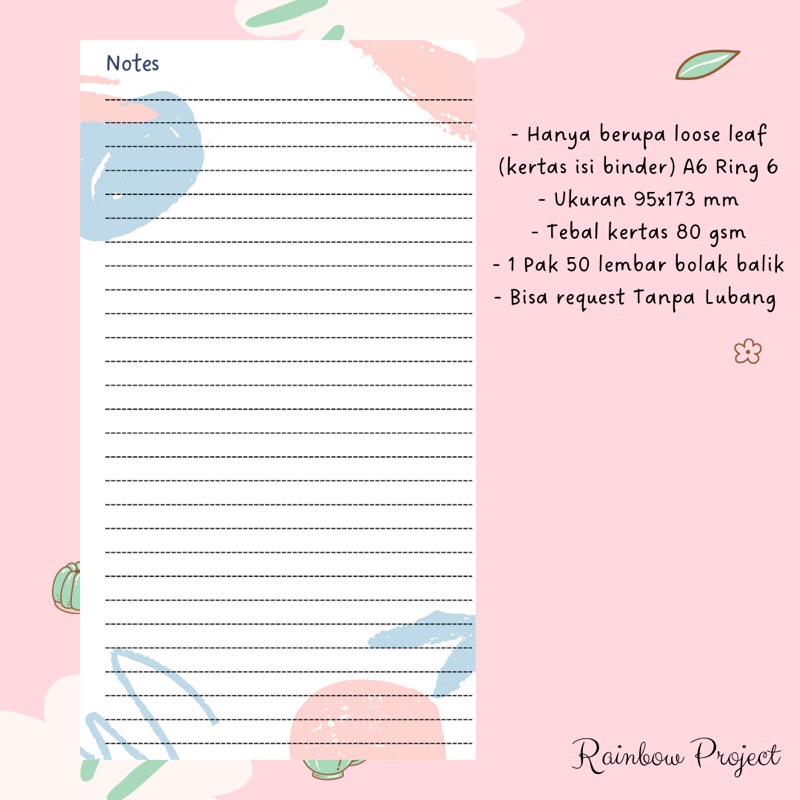 Notes
- Hanya berupa loose leaf
(kertas isi binder) A6 Ring 6
- Ukuran 95x173 mm
- Tebal kertas 80 gsm
- 1 Pak 50 lembar bolak balik
- Bisa request Tanpa Lubang
Rainbow Project